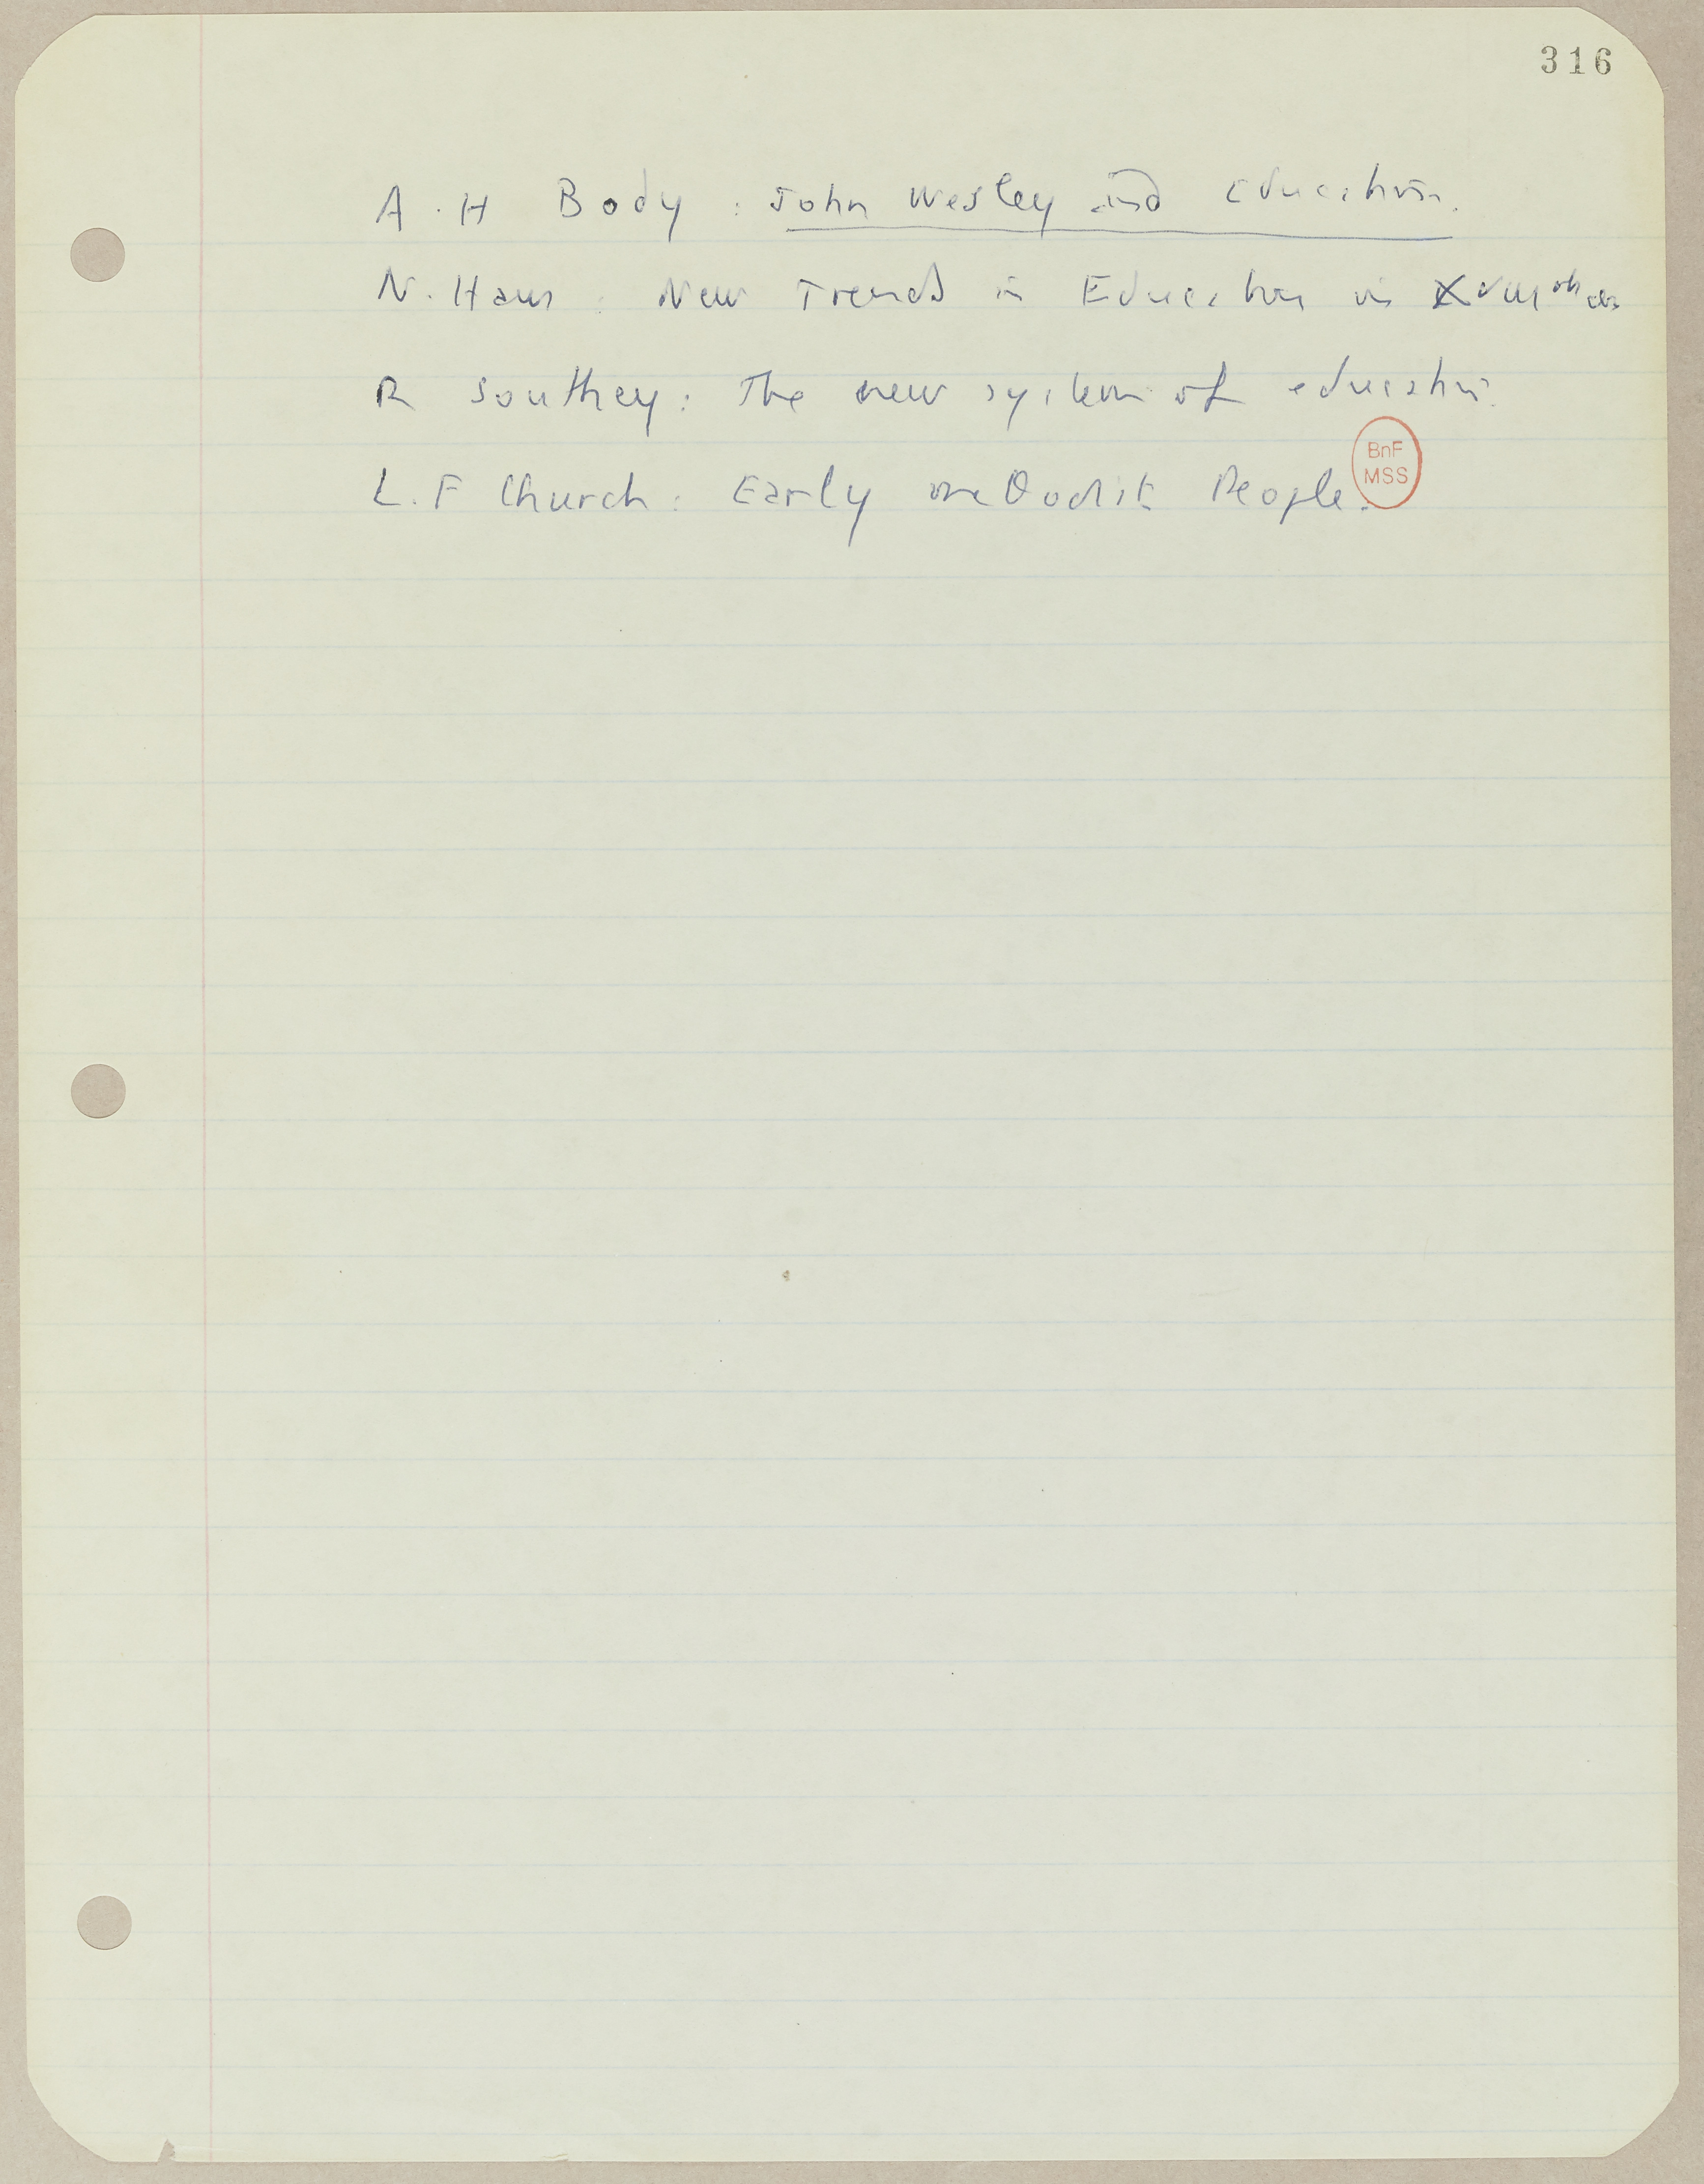 316
A. H Body : John Wesley and Education.
N. Hans : New Trends in Education in XVIII
R Southey : The new system of education.
L. F Church : Early methodist People.
BnF
MSS